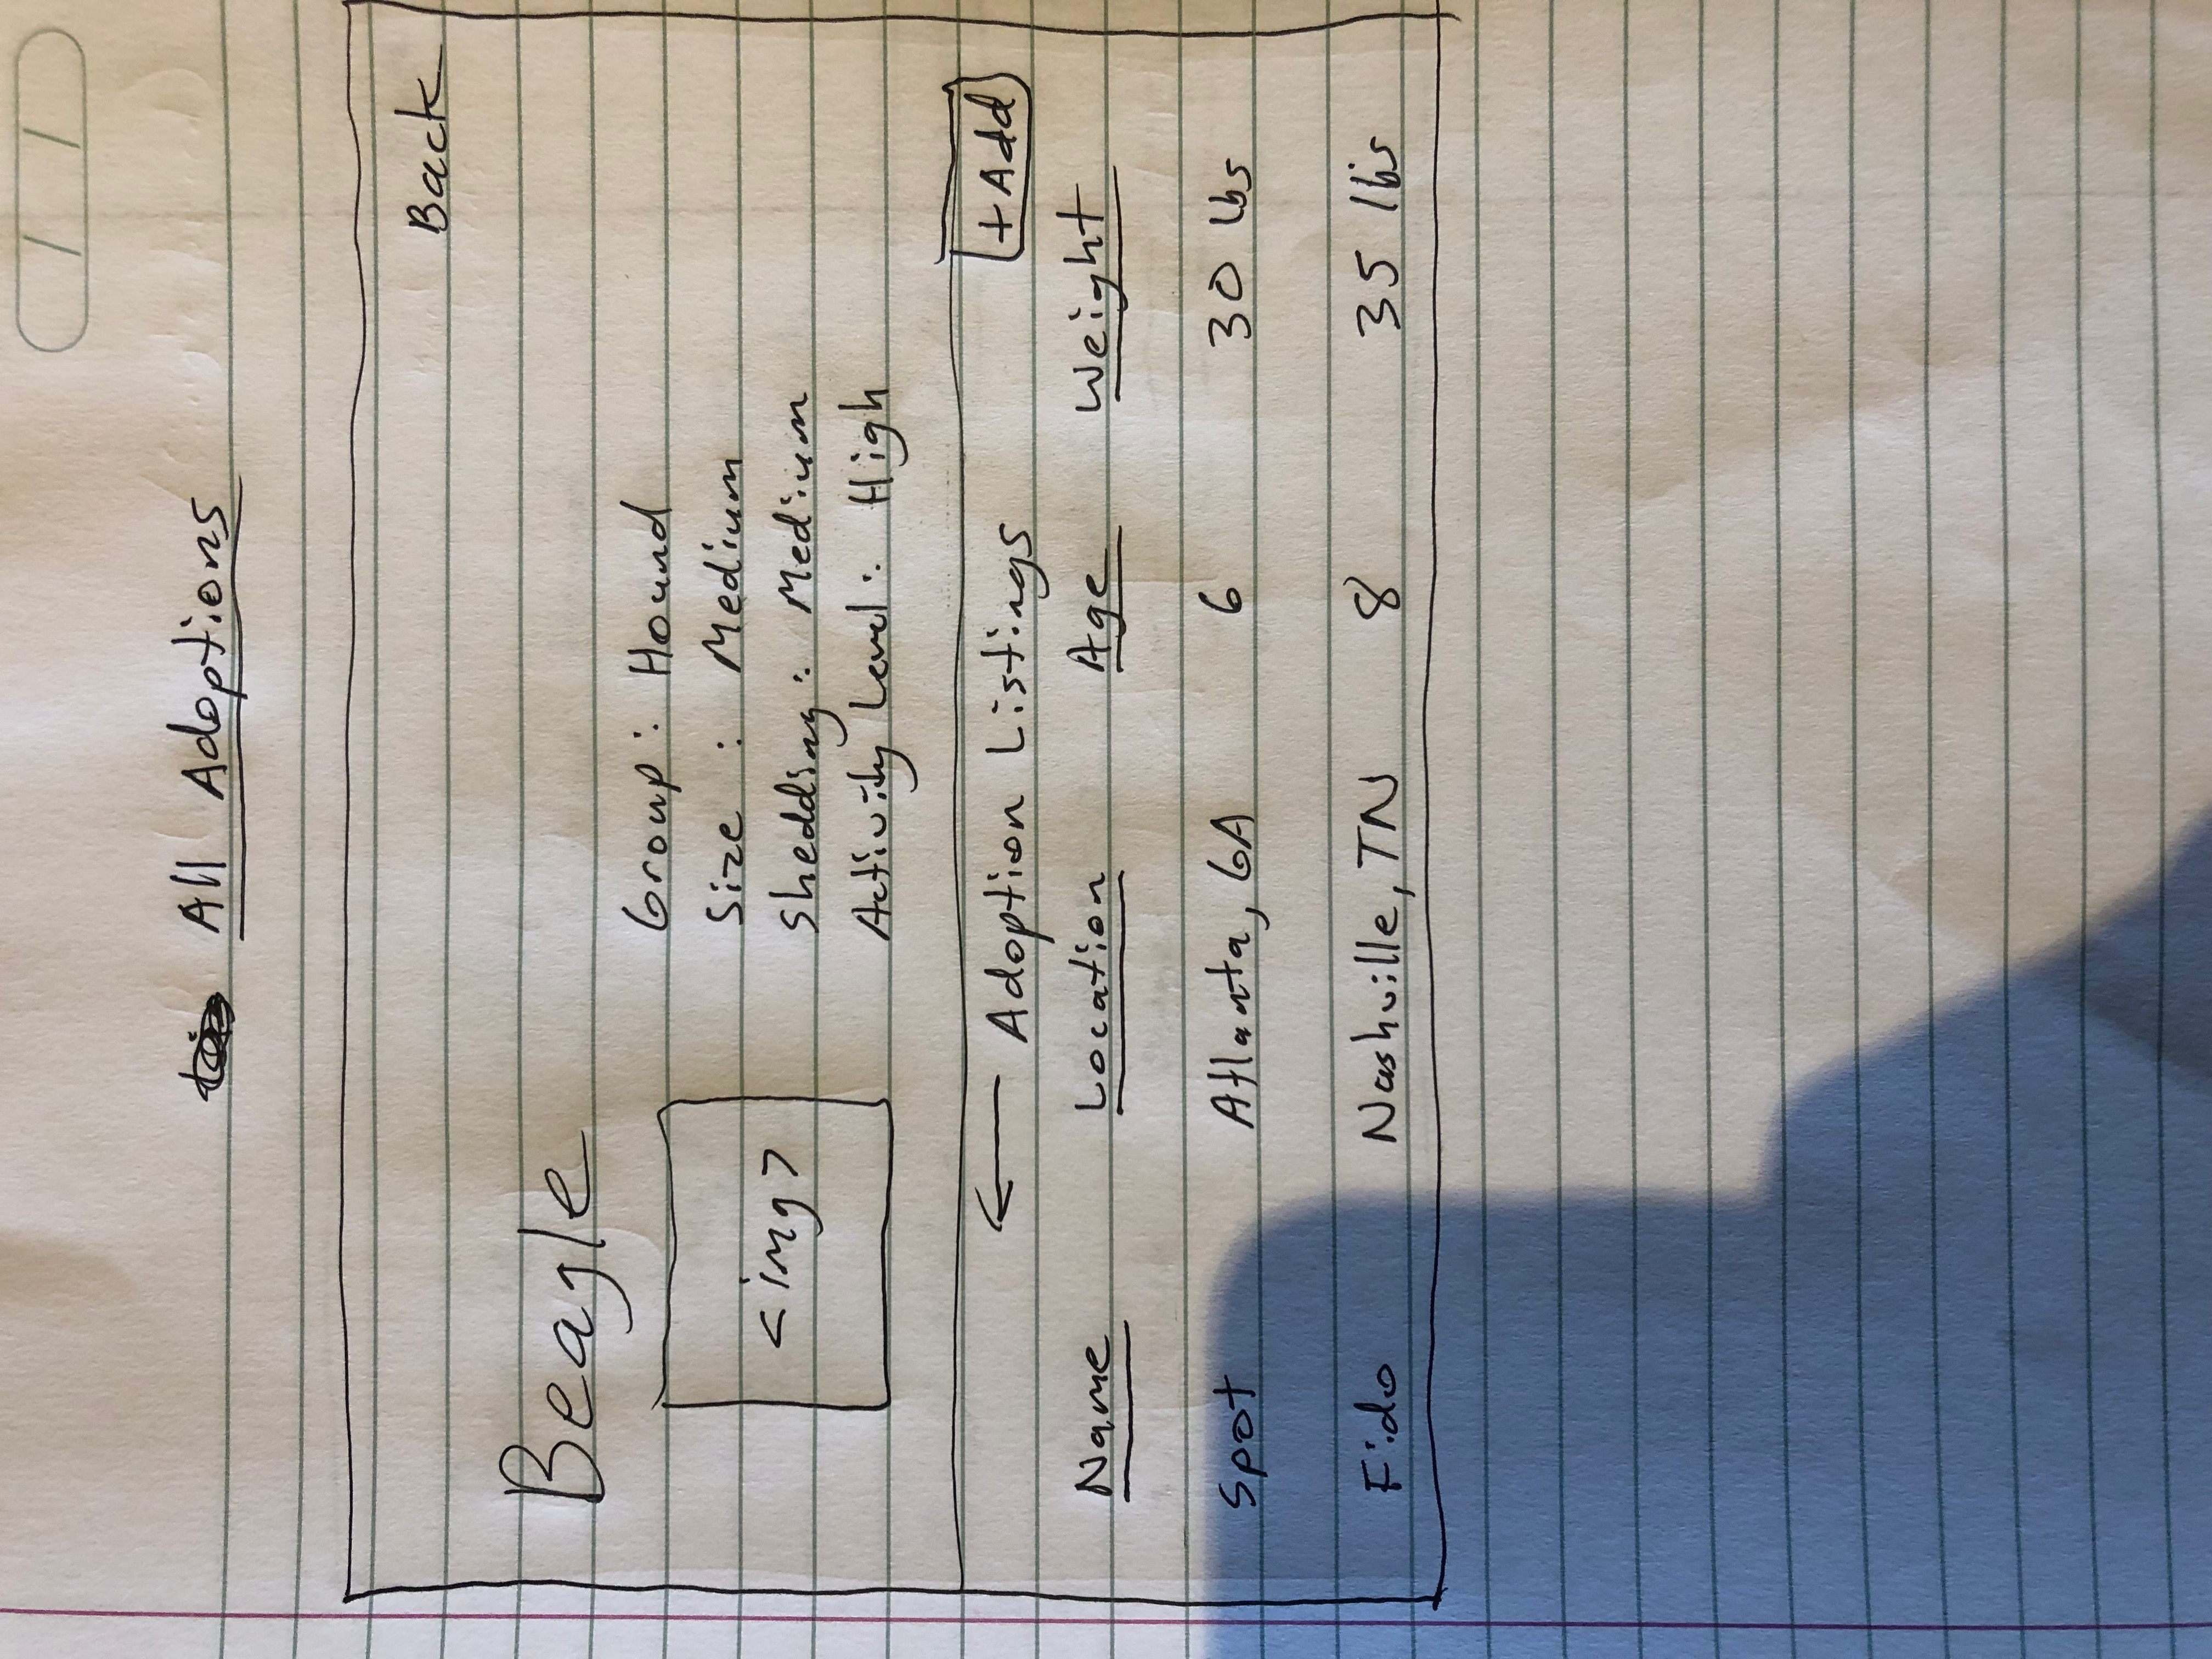 All Adoptions
Back
Beagle
<img>
Group: Hound
Size : Medium
Shedding: Medium
Activity Level: High
← Adoption Listings
+ Add
Name Location Age Weight
Spot Atlanta, GA 6 30 lbs
Fido Nashville, TN 8 35 lbs